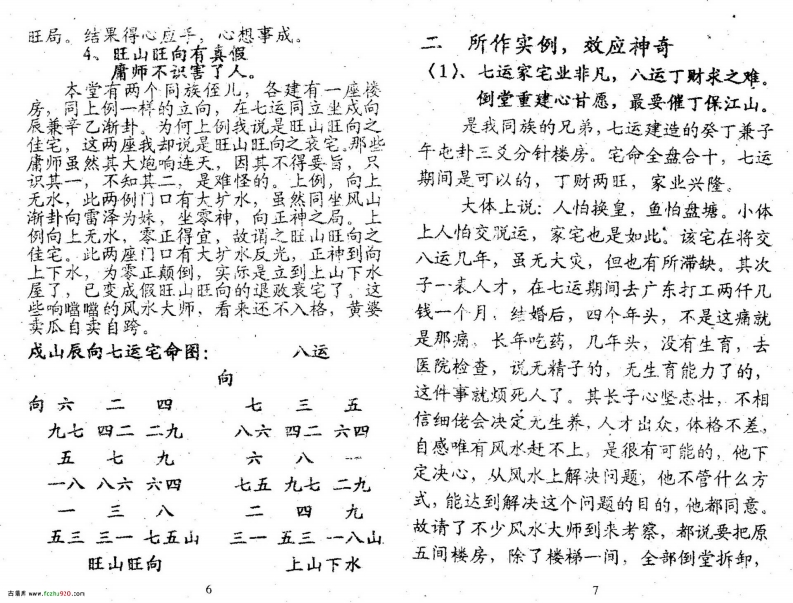 旺局。结果得心应手，心想事成。
4、旺山旺向有真假
庸师不识害了人。
本堂有两个同族侄儿，各建有一座楼
房，同上例一样的立向，在七运同立坐戍向
辰兼辛乙渐卦。为何上例我说是旺山旺向之
住宅，这两座我却说是旺山旺向之衰宅。那些
庸师虽然其大炮响连天，因其不得要旨，只
识其一，不知其二，是难怪的。上例，向上
无水，此两例门口有大圹水，虽然同坐风山
渐卦向雷泽为妹，坐零神，向正神之局。上
例向上无水，零正得宜，故谓之旺山旺向之
住宅。此两座门口有大圹水反光，正神到向
上下水，为零正颠倒，实际是立到上山下水
屋了，已变成假旺山旺向的退败衰宅了。这
些响噹噹的风水大师，看来还不入格，黄婆
卖瓜自卖自跨。
戍山辰向七运宅命图：　八运
向
向 六 二 四　七 三 五
九七 四二 二九　八六 四二 六四
五 七 九　六 八 一
一八 八六 六四　七五 九七 二九
一 三 八　二 四 九
五三 三一 七五山　三一 五三 一八山
旺山旺向　上山下水
6
二 所作实例，效应神奇
（1）、七运家宅业非凡，八运丁财求之难。
倒堂重建心甘愿，最要催丁保江山。
是我同族的兄弟，七运建造的癸丁兼子
午也卦三爻分针楼房。宅命全盘合十，七运
期间是可以的，丁财两旺，家业兴隆。
大体上说：人怕换皇，鱼怕盘塘。小体
上人怕交脱运，家宅也是如此。该宅在将交
八运几年，虽无大灾，但也有所滞缺。其次
子一表人才，在七运期间去广东打工两仟几
钱一个月、结婚后，四个年头，不是这痛就
是那痛、长年吃药，几年头，没有生育，去
医院检查，说无精子的，无生育能力了的，
这件事就烦死人了。其长子心坚志壮，不相
信细佬会决定无生养，人才出众，体格不差，
自感唯有风水赶不上，是很有可能的，他下
定决心，从风水上解决问题，他不管什么方
式，能达到解决这个问题的目的，他都同意。
故请了不少风水大师到来考察，都说要把原
五间楼房，除了楼梯一间，全部倒堂拆卸，
7
www.fczhu920.com